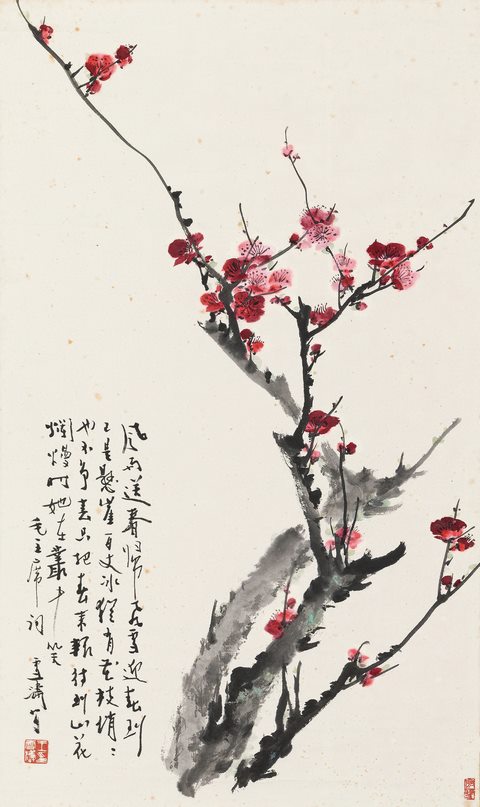 風雨送春歸飛雪迎春到
已是懸崖百丈冰猶有花枝俏〻
也不爭春只把春來報待到山花
爛熳时她在叢中笑
毛主席词 雪濤寫